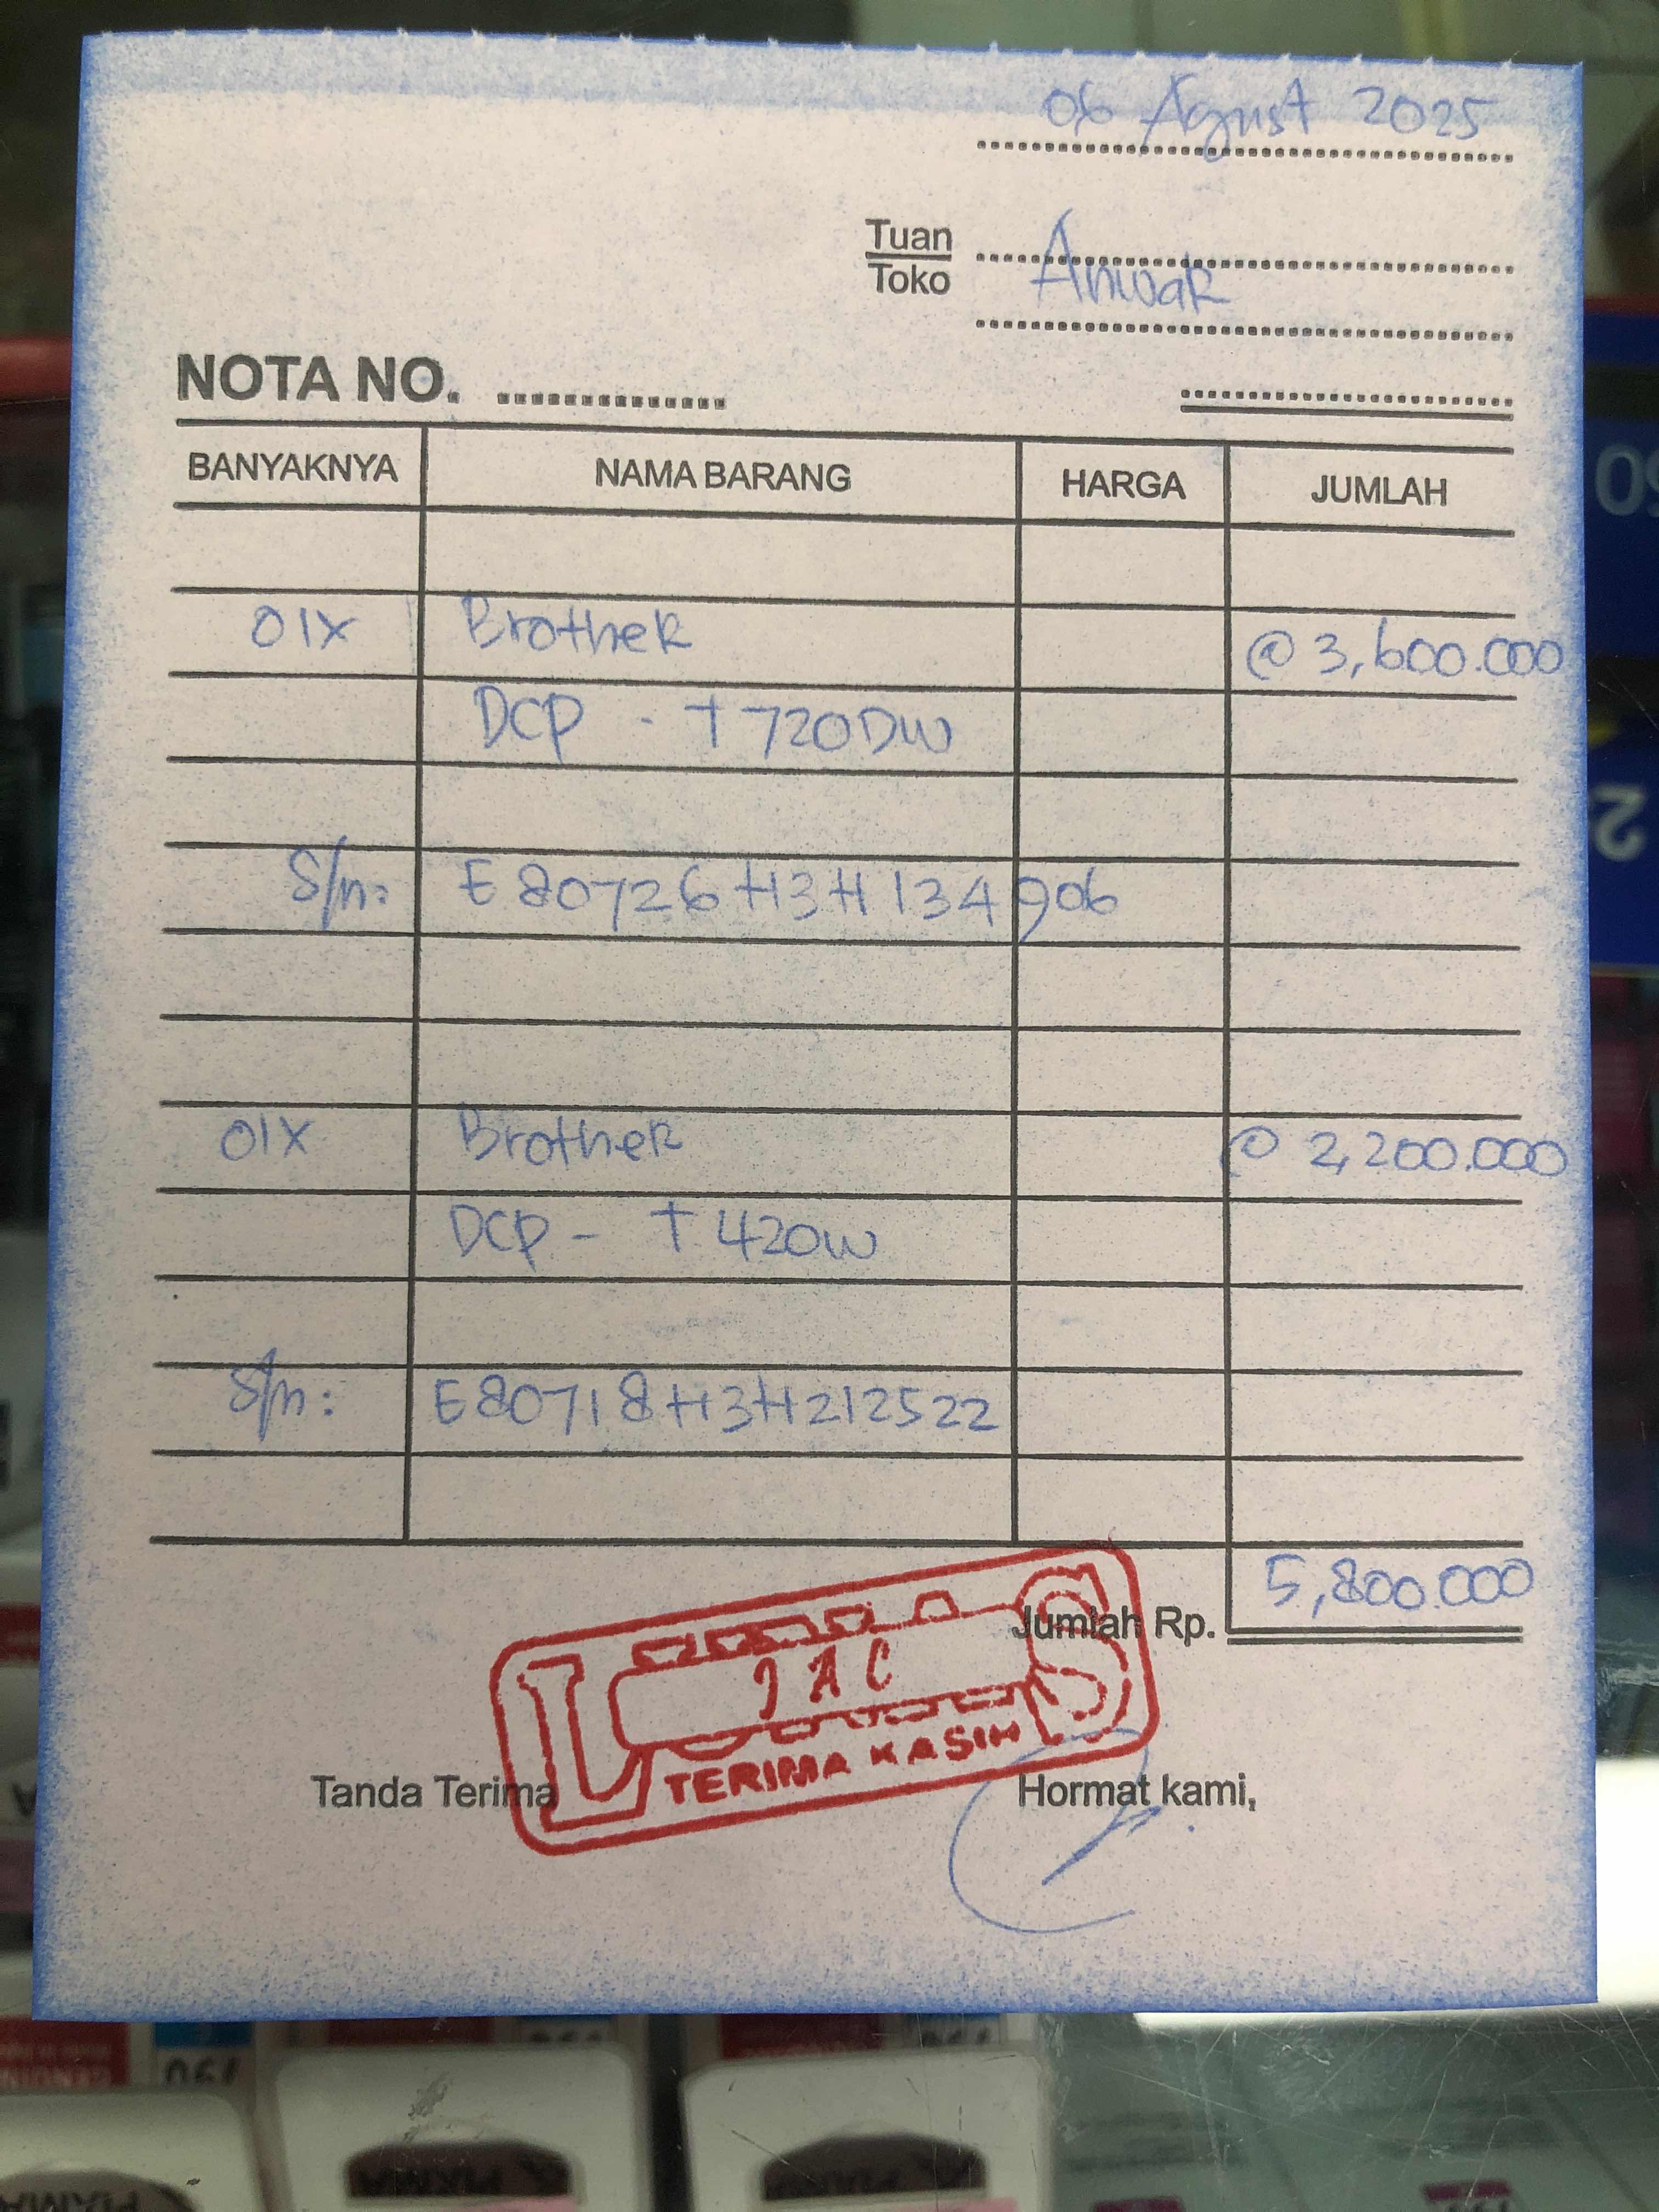 06 Agust 2025
Tuan
Toko
Anwar
NOTA NO.
BANYAKNYA NAMA BARANG HARGA JUMLAH
01X Brother @ 3,600.000
DCP - T720DW
S/n: E80726H3H134906
01X Brother @ 2,200.000
DCP - T420W
S/n: E80718H3H212522
Jumlah Rp. 5,800.000
LUNAS
JAC
TERIMA KASIH
Tanda Terima Hormat kami,
PIXMA PIXMA